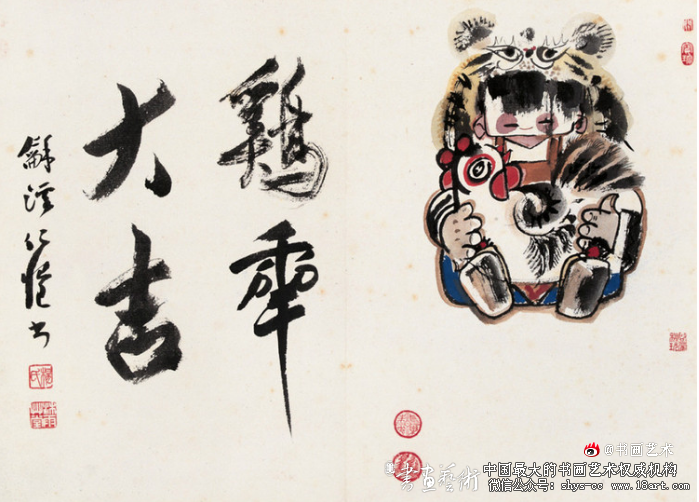 鷄年
大吉
龢溪仁愷书
@书画艺术
書畫藝術
中国最大的书画艺术权威机构
微信公众号:shys-cc www.18art.com